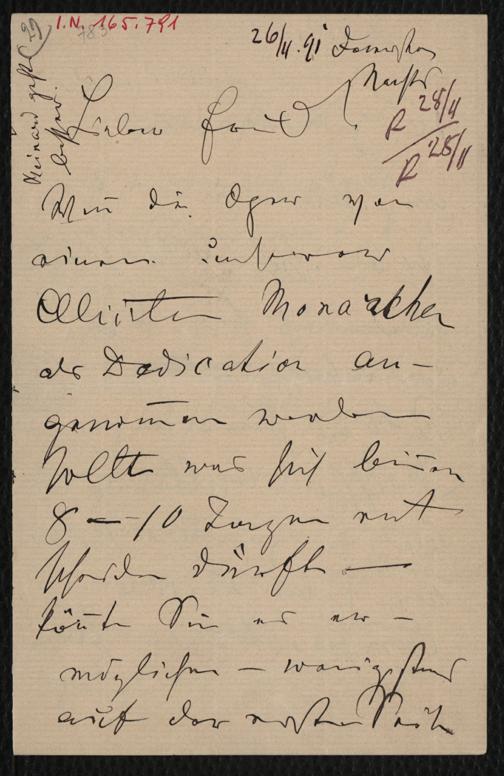 I.N. 165.791
29
26/4. 91 Donnerstag
Nachts
Lieber Freund!
R 28/4
R 28/4
Wenn die Oper von
einem unserer
Alliirten Monarchen
als Dedication an-
genommen werden
sollte was sich binnen
8 – 10 Tagen ent
scheiden dürfte —
könnte Sie es er-
möglichen – wenigstens
auf der ersten Seite